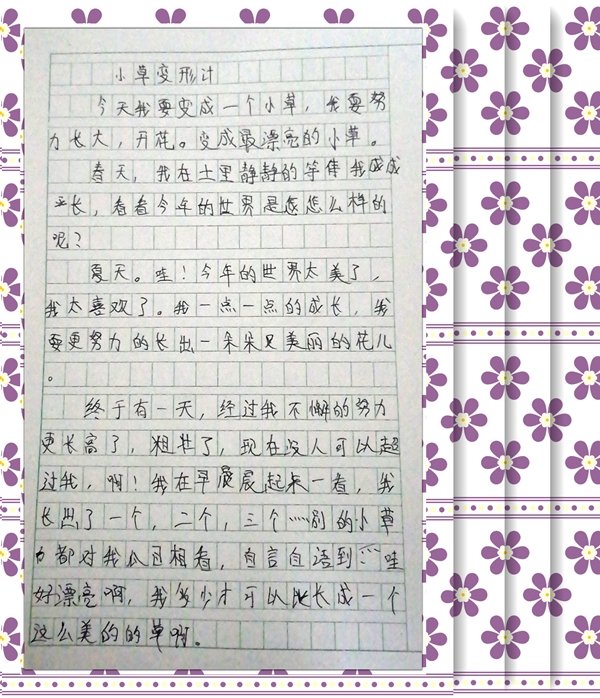 小草变形计
今天我要变成一个小草，我要努
力长大，开花。变成最漂亮的小草。
春天，我在土里静静的等候我成
长，看看今年的世界是怎么样的
呢？
夏天。哇！今年的世界太美了，
我太喜欢了。我一点一点的成长，我
要更努力的长出一朵朵又美丽的花儿
。
终于有一天，经过我不懈的努力
更长高了，粗壮了，现在没人可以超
过我，啊！我在早晨起来一看，我
长出了一个，二个，三个……别的小草
都对我相看，自言自语到：“哇
好漂亮啊，我多少才可以比长成一个
这么美的的草啊。